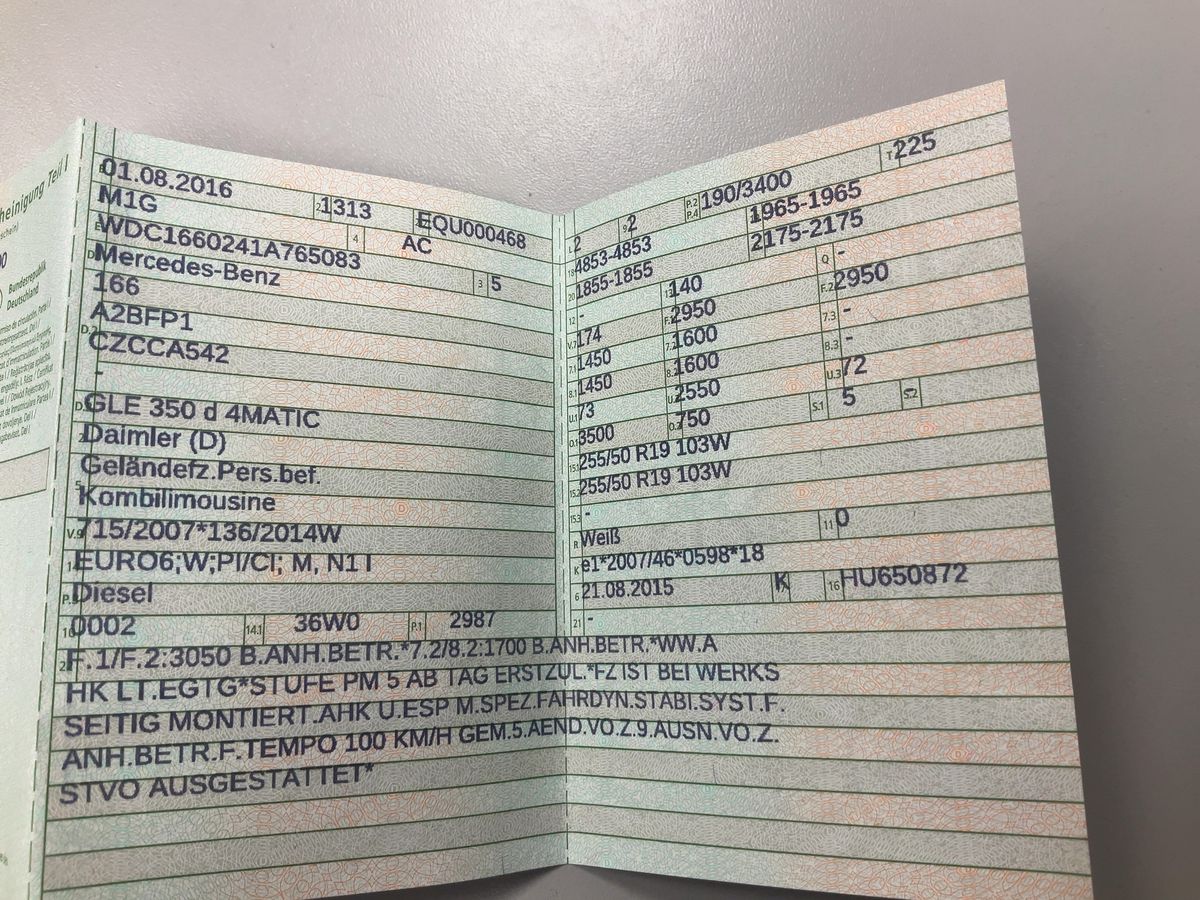 heinigung Teil I
schein)
Bundesrepublik
Deutschland
01.08.2016 2.1 1313 EQU000468
M1G
WDC1660241A765083 4 AC
Mercedes-Benz 3 5
166
D.2 A2BFP1
CZCCA542
-
GLE 350 d 4MATIC
Daimler (D)
Geländefz.Pers.bef.
5 Kombilimousine
V.9 715/2007*136/2014W
EURO6;W;PI/CI; M, N1 I
P.3 Diesel
10 0002 14.1 36W0 P.1 2987
L 2 9 2 P.2 P.4 190/3400 T 225
18 4853-4853 1965-1965
20 1855-1855 2175-2175
12 - 13 140 Q -
V.7 174 F.1 2950 F.2 2950
7.1 1450 7.2 1600 7.3 -
8.1 1450 8.2 1600 8.3 -
U.1 73 U.2 2550 U.3 72
O.1 3500 O.2 750 S.1 5 S.2
15.1 255/50 R19 103W
15.2 255/50 R19 103W
15.3 -
R Weiß 11 0
K e1*2007/46*0598*18
6 21.08.2015 K 16 HU650872
21 -
F.1/F.2:3050 B.ANH.BETR.*7.2/8.2:1700 B.ANH.BETR.*WW.A
HK LT.EGTG*STUFE PM 5 AB TAG ERSTZUL.*FZ IST BEI WERKS
SEITIG MONTIERT.AHK U.ESP M.SPEZ.FAHRDYN.STABI.SYST.F.
ANH.BETR.F.TEMPO 100 KM/H GEM.5.AEND.VO.Z.9.AUSN.VO.Z.
STVO AUSGESTATTET*